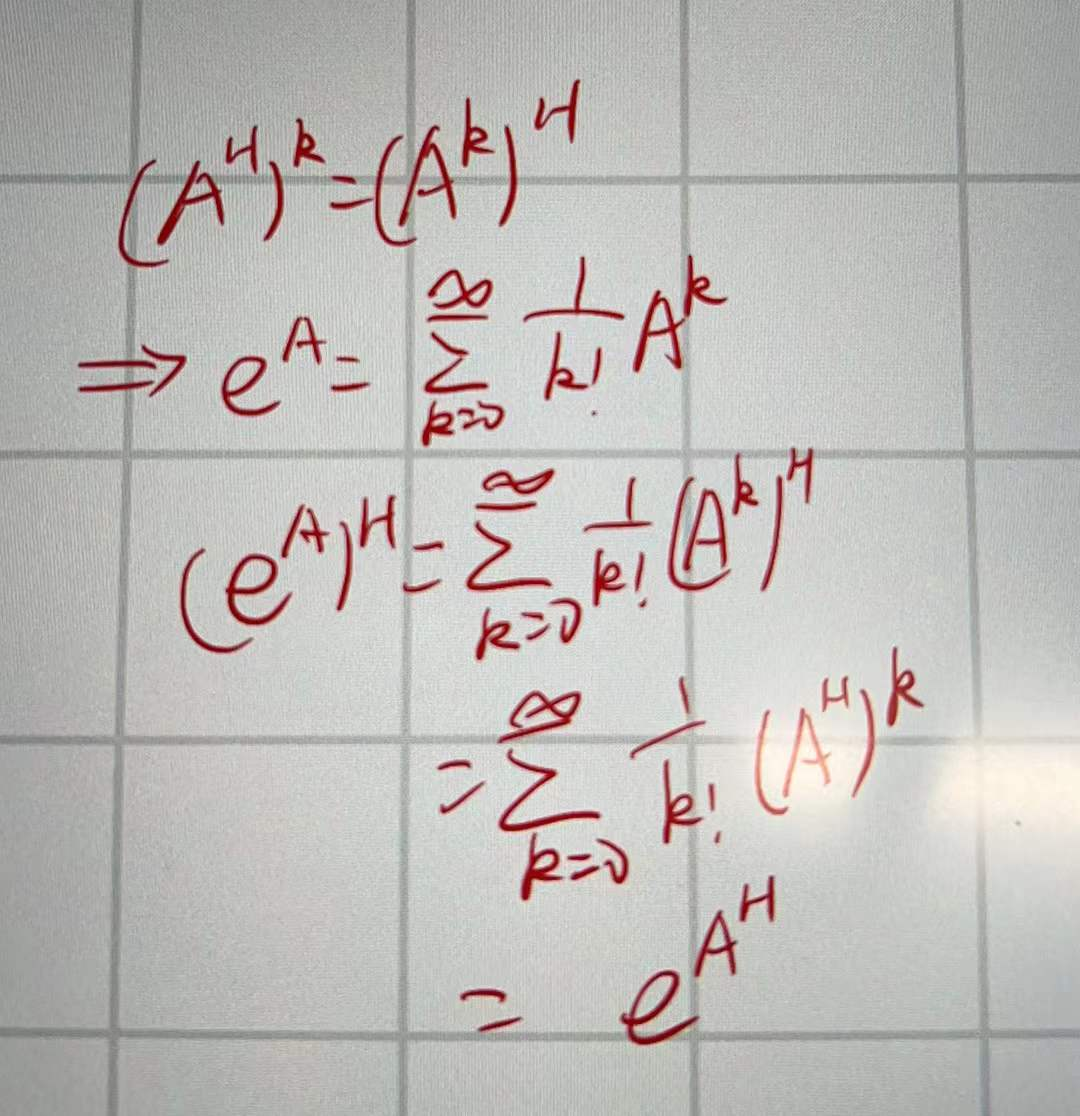 (A^H)^k = (A^k)^H
⇒ e^A = ∑_{k=0}^{∞} \frac{1}{k!} A^k
(e^A)^H = ∑_{k=0}^{∞} \frac{1}{k!} (A^k)^H
= ∑_{k=0}^{∞} \frac{1}{k!} (A^H)^k
= e^{A^H}